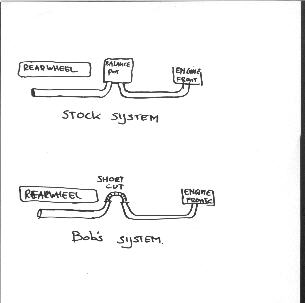 REARWHEEL
BALANCE
POT
ENGINE
FRONT
STOCK SYSTEM
SHORT
CUT
REARWHEEL
ENGINE
FRONT
Bob's SYSTEM.